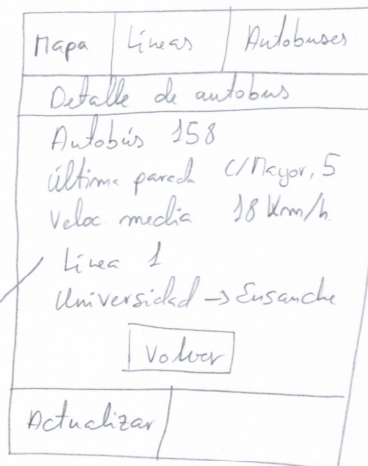 Mapa Líneas Autobuses
Detalle de autobus
Autobús 158
última parada c/Mayor, 5
Veloc. media 18 Km/h.
Línea 1
Universidad -> Ensanche
Volver
Actualizar